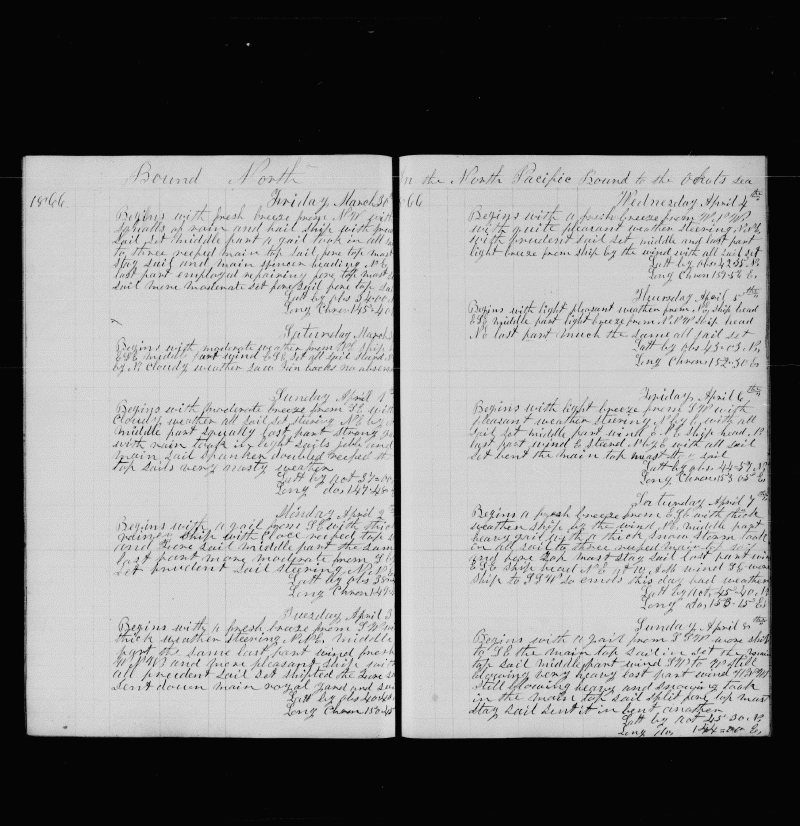 Bound North
1866
Friday March 30
Begins with fresh breeze from N W with
squalls of rain and hail Ship with prud
sail set middle part a gail took in all
to three reeped main top sail fore top mast
stay sail and main spencer heading N E
last part employed repairing fore top mast s
sail more moderate set fore sail fore top sa
Latt by obs 34=00
Long Chron 145=40
Saturday March 3
Begins with moderate weather from N E Ship
E S E middle part wind E S E set all sail stand N
by N Cloudy weather saw fin backs no observ
Sunday April 1st
Begins with moderate breeze from S E with
Cloudy weather all sail set stering N E by
middle part squally last part strong
with rain took in light sails jibb and
main sail spanker doubled reeped th
top sails very nasty weather
Latt by act 37=00
Long do 147=45
Monday April 2nd
Begins with a gail from S E with thic
rainey Ship with Close reeped top s
and fore sail middle part the sam
last part more moderate from
set prudent sail steering N N E
Latt by obs 38
Long Chron 149
Tuesday April 3
Begins with a fresh breeze from S W
thick weather steering N E middle
part the same last part wind fresh
W S W and more pleasant Ship with
all prudent sail set shifted the fore s
Sent down main royal yard and
Latt by obs 40=40
Long Chron 150=45
In the North Pacific Bound to the Okots sea
66
Wednesday April 4th
Begins with a fresh breeze from W N W
with quite pleasant weather steering
with prudent sail set middle and last part
light breeze from Ship by the wind with all sail set
Latt by obs 42=55 N
Long Chron 151=56 E
Thursday April 5th
Begins with light pleasant weather from N Ship head
E S E middle part light breeze from N N W Ship head
N E last part much the same all sail set
Latt by obs 43=03 N
Long Chron 152=30 E
Friday April 6th
Begins with light breeze from S W with
pleasant weather steering N E by E with all
sail set middle part wind E N E Ship head N
last part wind E stend N by E with all sail
set bent the main top mast st sail
Latt by obs 44=57 N
Long Chron 153=05 E
Saturday April 7th
Begins a fresh breeze from E S E with thick
weather Ship by the wind N E middle part
heavy gail with a thick snow storm took
in all sail to three reeped main top sail
and fore top mast stay sail last part wind
E S E Ship head N E at 11 A M wind S E wore
Ship to S S W So ends this day bad weather
Latt by act 45=40 N
Long do 153=45 E
Sunday April 8th
Begins with a gail from S S W wore ship
to S E the main top sail in set the main
top sail middle part wind S W to W still
blowing very heavy last part wind W N W
still blowing heavy and snowing took
in the main top sail split fore top mast
stay sail sent it in bent another
Latt by act 45=30 N
Long do 154=00 E